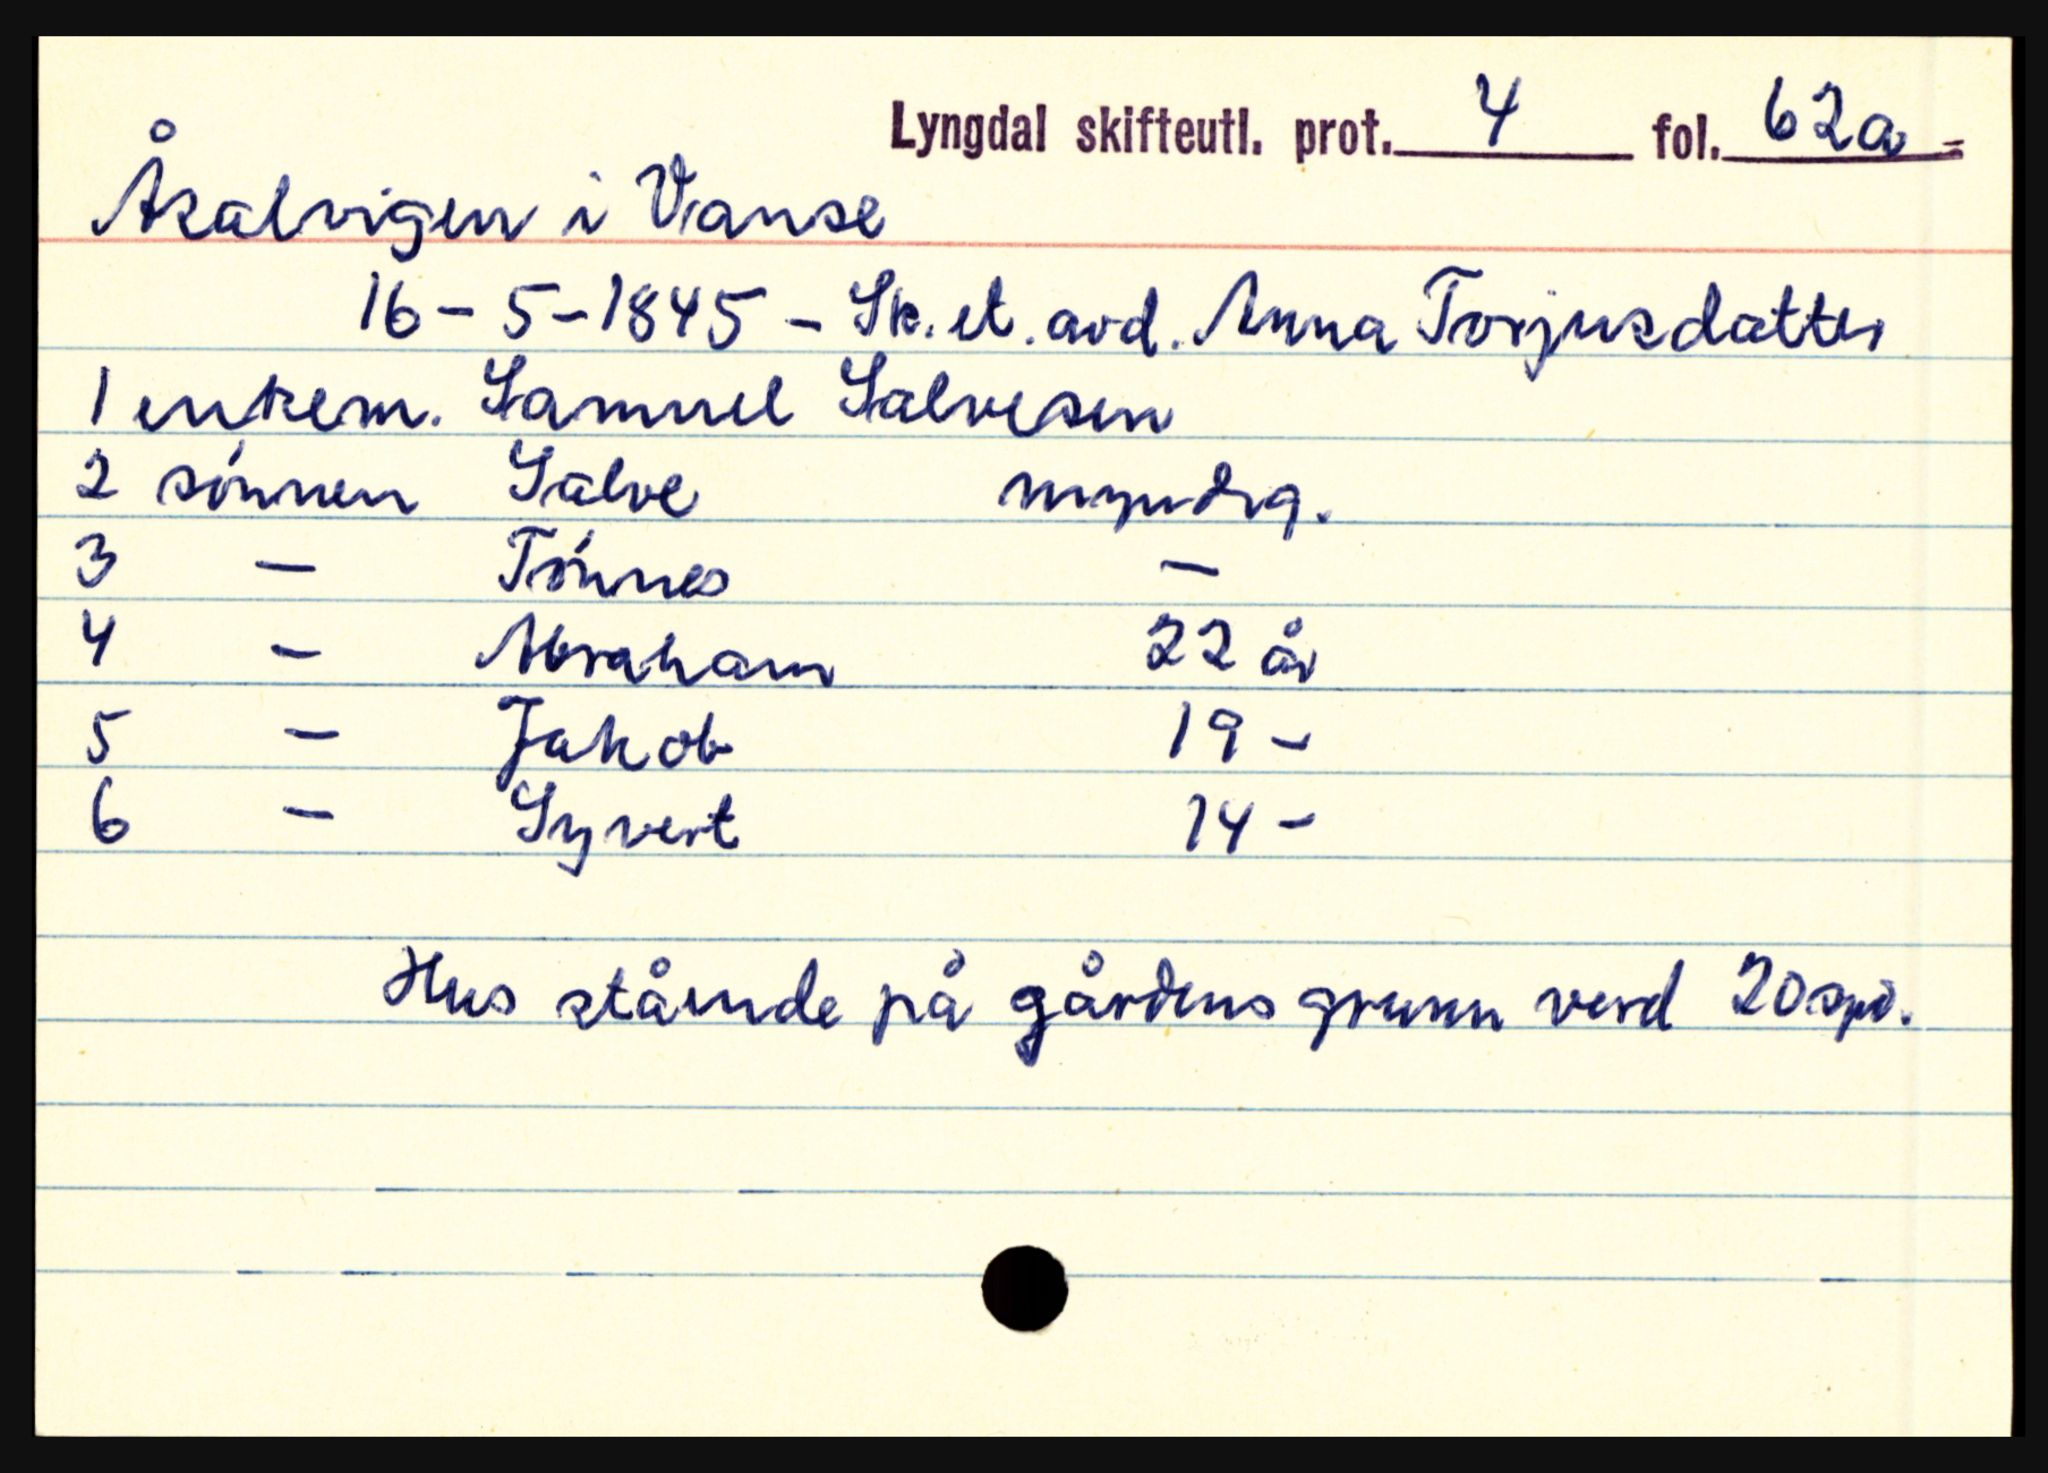 Lyngdal skifteutl. prot. 4 fol. 62a -
Åsalvigen i Vanse
16 - 5 - 1845 - Sk. et. avd. Anna Torjusdatter
1 enkem. Samuel Salvesen
2 sønnen Salve myndig.
3 - Tønnes -
4 - Abraham 22 år
5 - Jakob 19 -
6 - Syvert 14 -
Hus stående på gårdens grunn verd 20 spd.